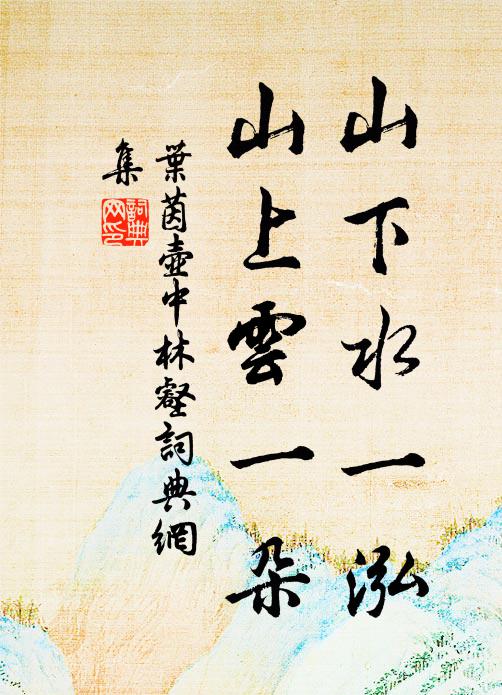 山下水一泓
山上雲一朵
葉茵壺中林壑詞典網
集
詞典
网印